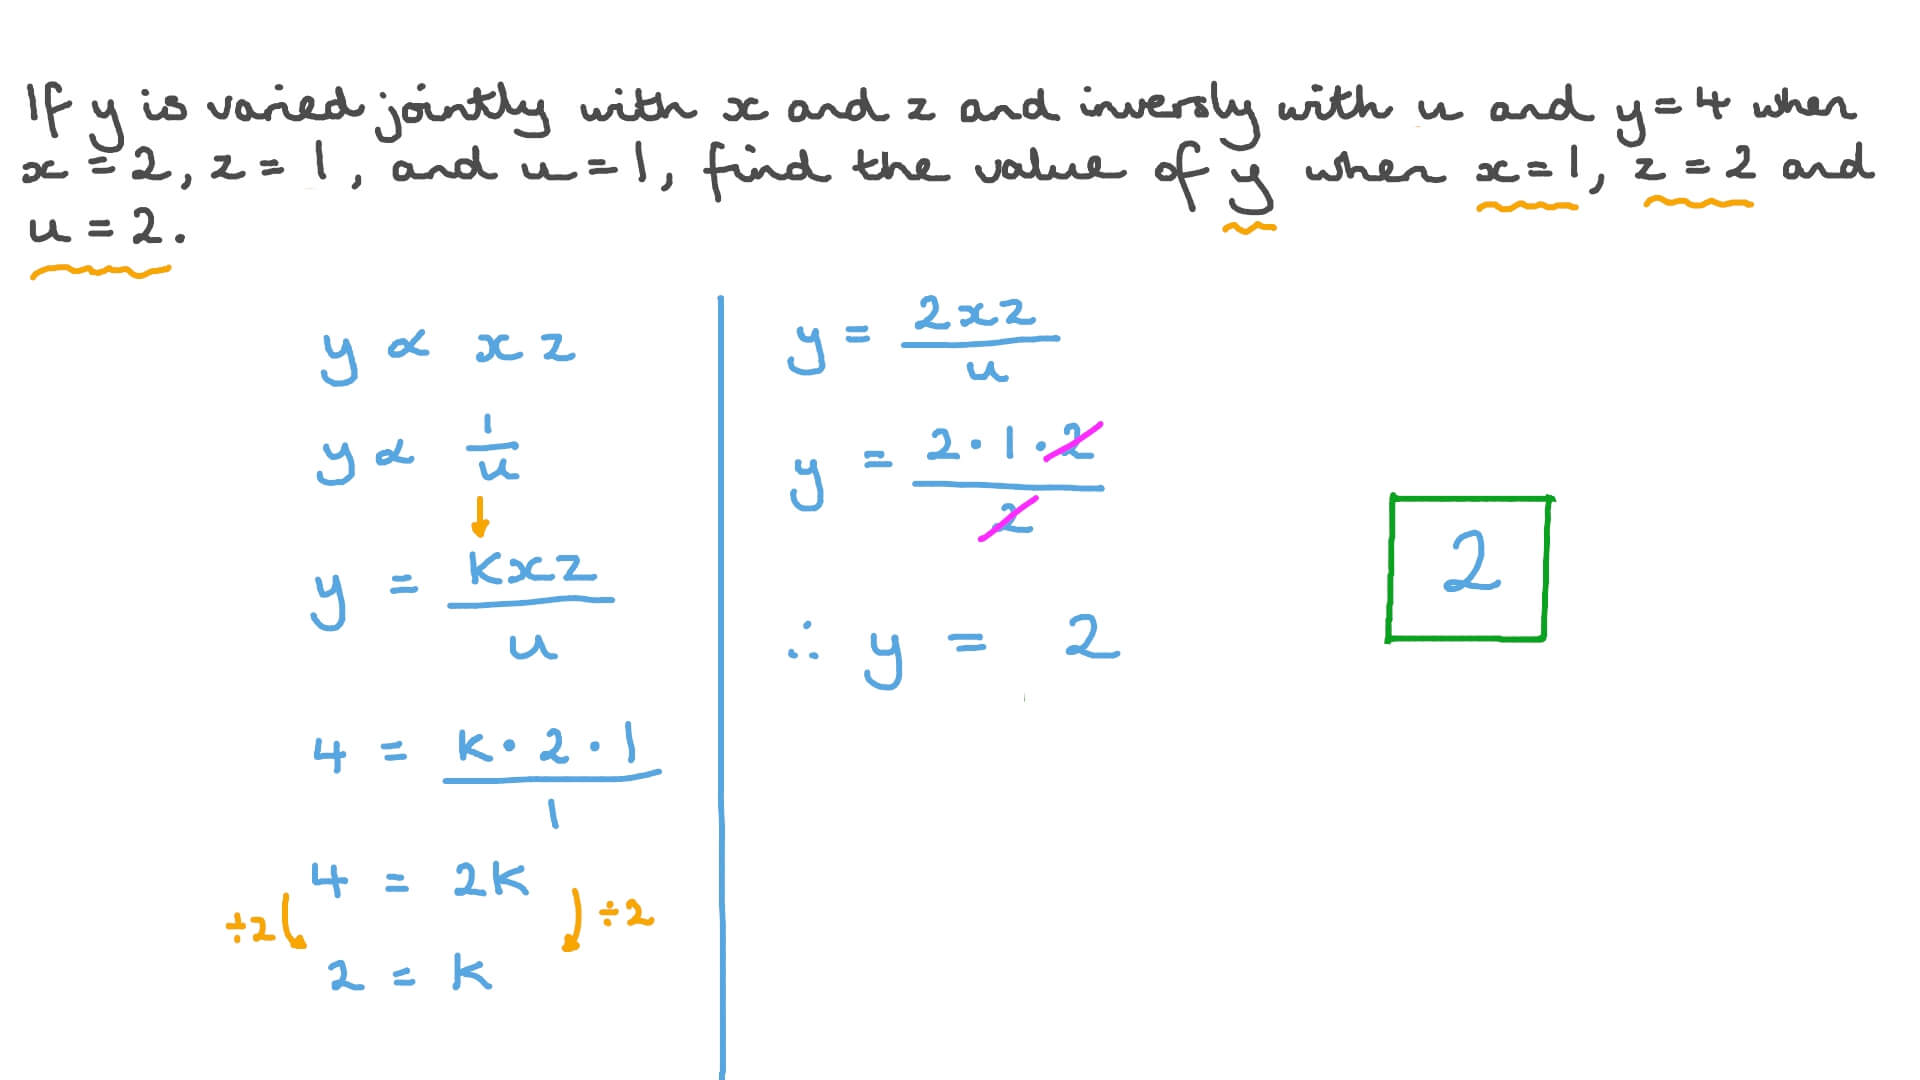 If y is varied jointly with x and z and inversly with u and y=4 when
x=2, z=1, and u=1, find the value of y when x=1, z=2 and
u=2.
y ∝ xz
y ∝ 1/u
↓
y = kxz/u
4 = k·2·1/1
4 = 2k
÷2 ÷2
2 = k
y = 2xz/u
y = 2·1·2/2
∴ y = 2
2